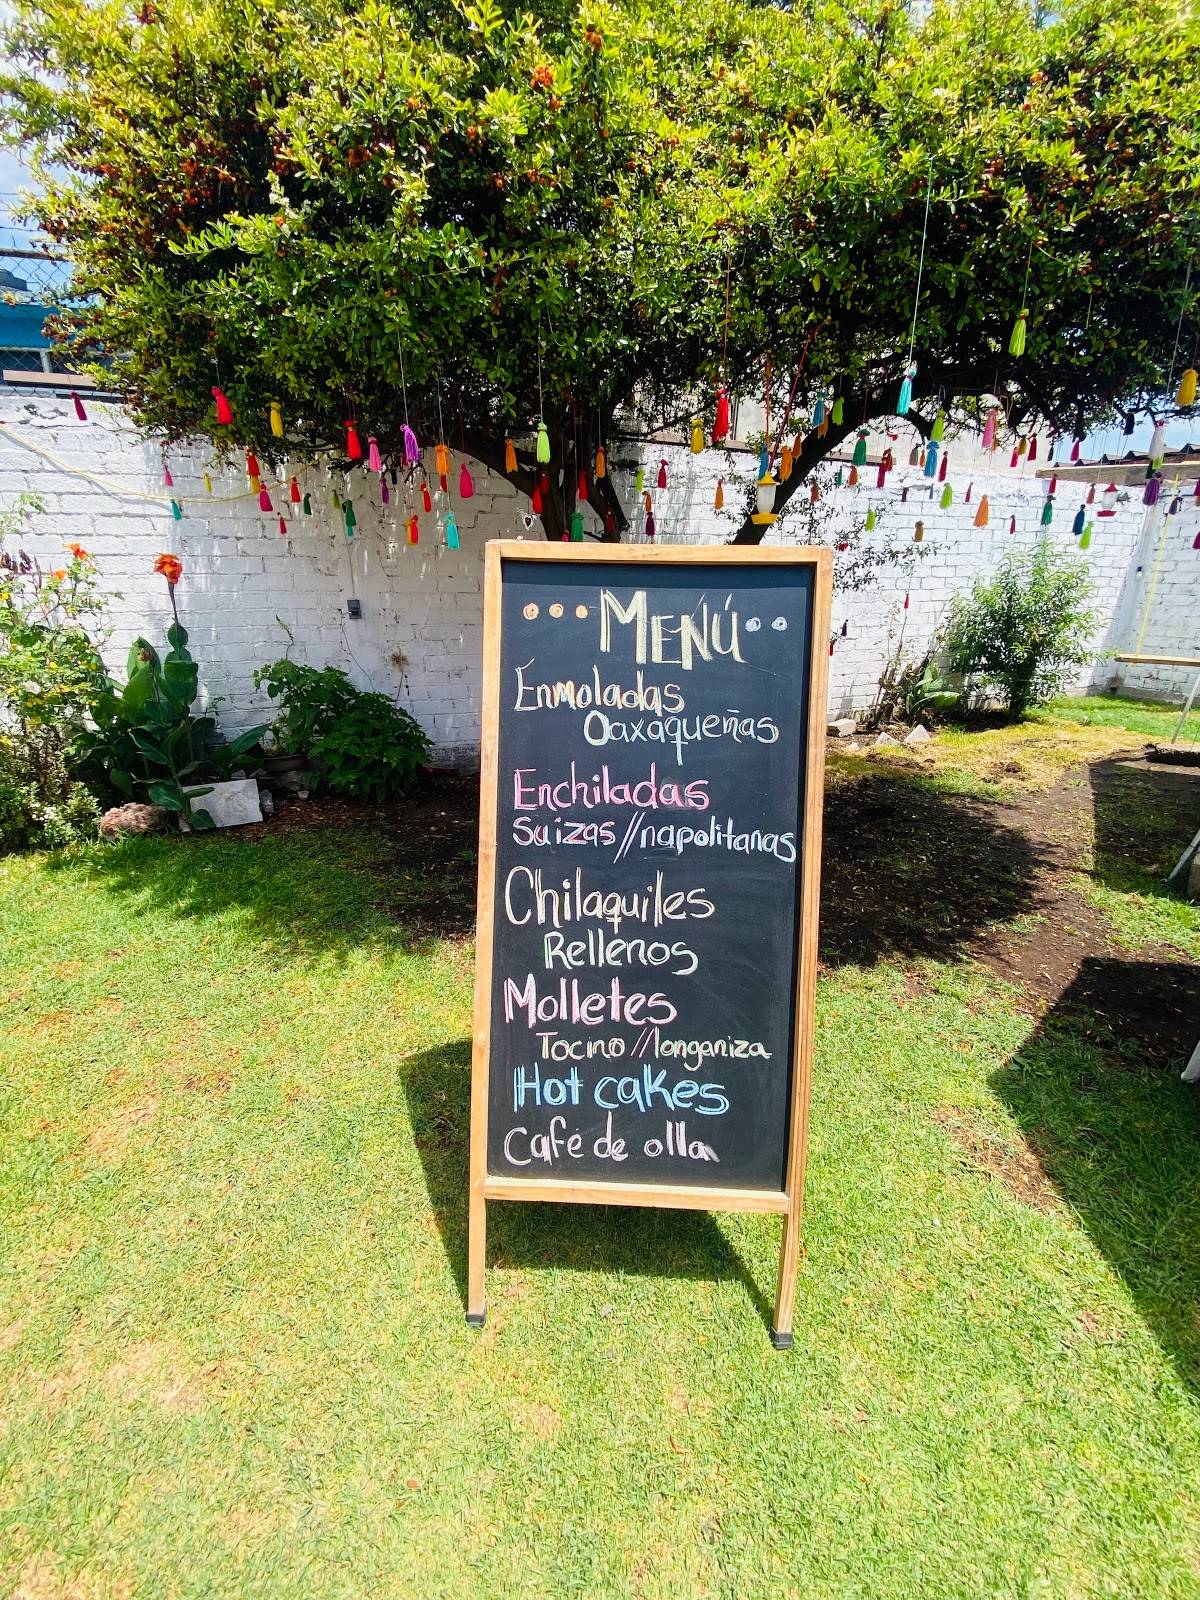 MENÚ
Enmoladas
Oaxaqueñas
Enchiladas
Suizas//napolitanas
Chilaquiles
Rellenos
Molletes
Tocino//longaniza
Hot cakes
Café de olla